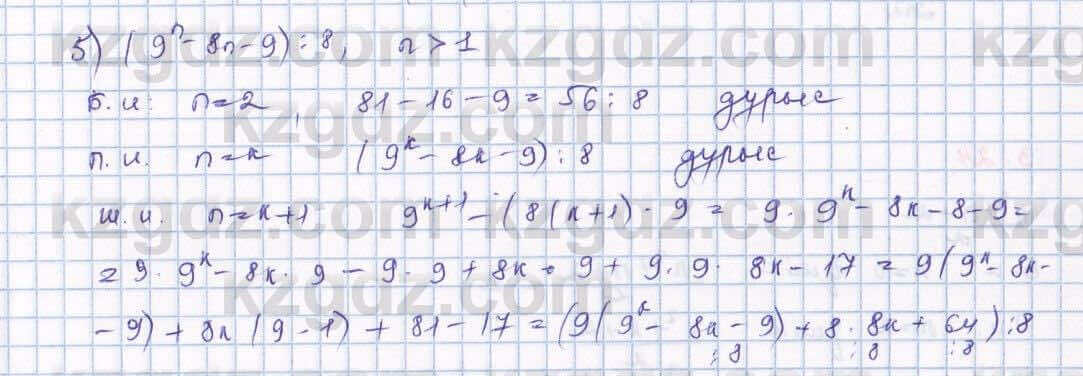 5) (9ⁿ - 8n - 9) : 8, n > 1
б.и: n = 2, 81 - 16 - 9 = 56 : 8 дурыс
п.и. n = k (9ᵏ - 8k - 9) : 8 дурыс
ш.и. n = k+1 9ᵏ⁺¹ - (8(k+1) - 9 = 9 · 9ᵏ - 8k - 8 - 9 =
= 9 · 9ᵏ - 8k · 9 - 9 · 9 + 8k · 9 + 9 · 9 · 8k - 17 = 9(9ᵏ - 8k -
- 9) + 8k (9 - 1) + 81 - 17 = (9(9ᵏ - 8k - 9) + 8 · 8k + 64) : 8
:8 :8 :8
kzgdz.com